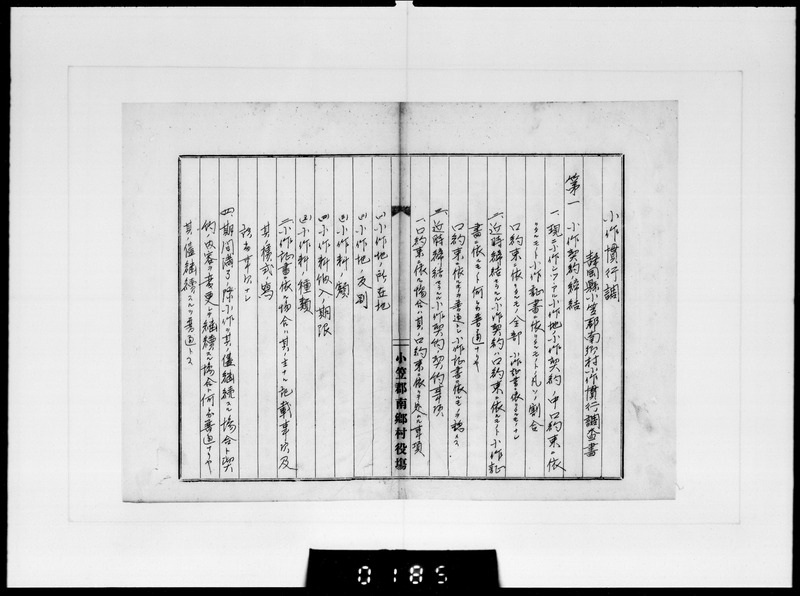 小作慣行調
静岡縣小笠郡南郷村小作慣行調査書
第一　小作契約締結
一、現ニ小作シツヽアル小作地ノ小作契約中口約束ニ依
ルモノト小作証書ニ依ルモノトノ凡ソノ割合
口約束ニ依ルモノ全部　小作証書ニ依ルモノナシ
二、近時締結スル小作契約ハ口約束ニ依ルモノト小作証
書ニ依ルモノト何レカ普通ナリヤ
口約束ニ依ルモノ普通ニシテ小作証書ニ依ルモノ稀ナリ
三、近時締結スル小作契約ノ契約事項
一、口約束ニ依ル場合ハ其ノ口約束ニ依リ定ムル事項
(一)小作地ノ所在地
(二)小作地ノ反別
(三)小作料ノ額
(四)小作料納入ノ期限
(五)小作料ノ種類
二、小作証書ニ依ル場合ハ其ノ主ナル記載事項及
其ノ様式ノ寫
該当事項ナシ
四、期間満了ノ際小作ヲ其ノ儘継続スル場合ト契
約ノ内容ヲ変更シ継続スル場合ト何レカ普通ナリヤ
其ノ儘継続スルヲ普通トス
小笠郡南郷村役場
0185